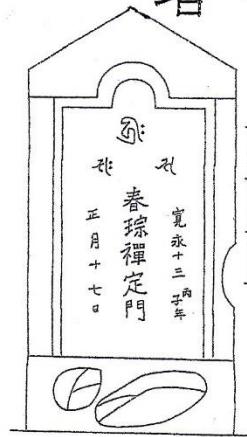 𑖮𑖿𑖨𑖱𑖾
𑖭
𑖭𑖾
寛永十三丙子年
春琮禪定門
正月十七日